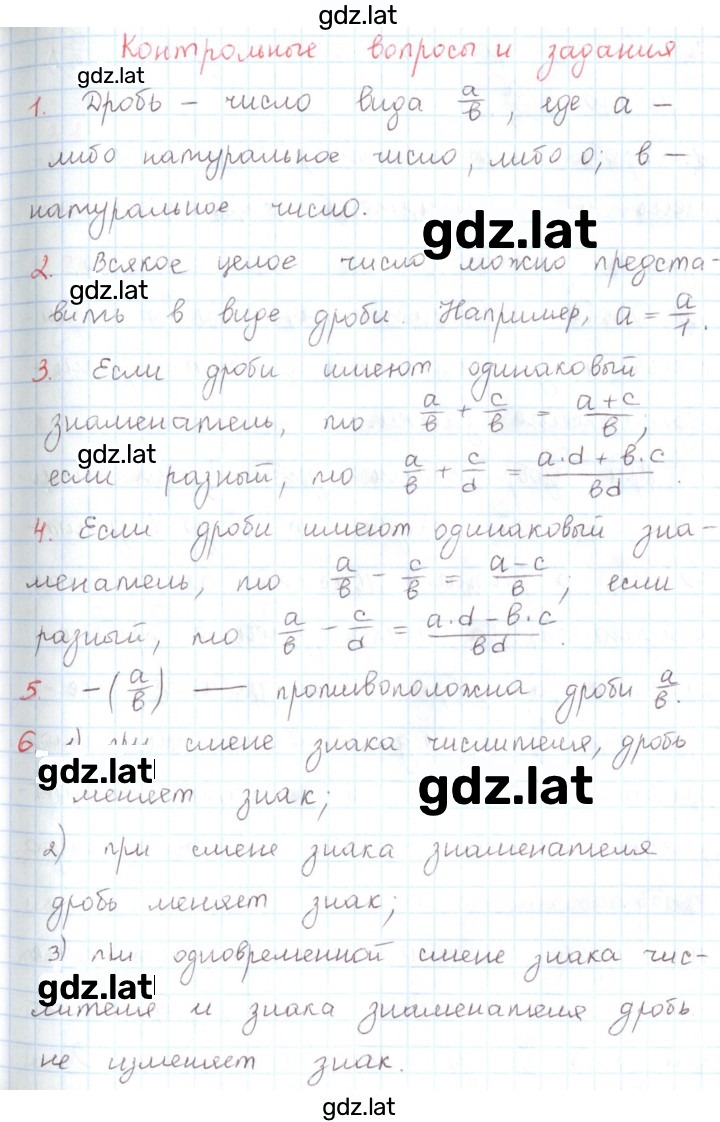 gdz.lat
Контрольные вопросы и задания
gdz.lat
1. Дробь – число вида a/в, где a –
либо натуральное число, либо 0; в –
натуральное число.
gdz.lat
2. Всякое целое число можно предста-
gdz.lat
вить в виде дроби. Например, a = a/1.
3. Если дроби имеют одинаковый
знаменатель, то a/в + c/в = (a+c)/в;
gdz.lat
если разный, то a/в + c/d = (a·d + в·c)/вd.
4. Если дроби имеют одинаковый зна-
менатель, то a/в – c/в = (a–c)/в; если
разный, то a/в – c/d = (a·d – в·c)/вd.
5. –(a/в) — противоположна дроби a/в.
6. 1) при смене знака числителя, дробь
gdz.lat
меняет знак;
gdz.lat
2) при смене знака знаменателя
дробь меняет знак;
3) при одновременной смене знака чис-
gdz.lat
лителя и знака знаменателя дробь
не изменяет знак.
gdz.lat